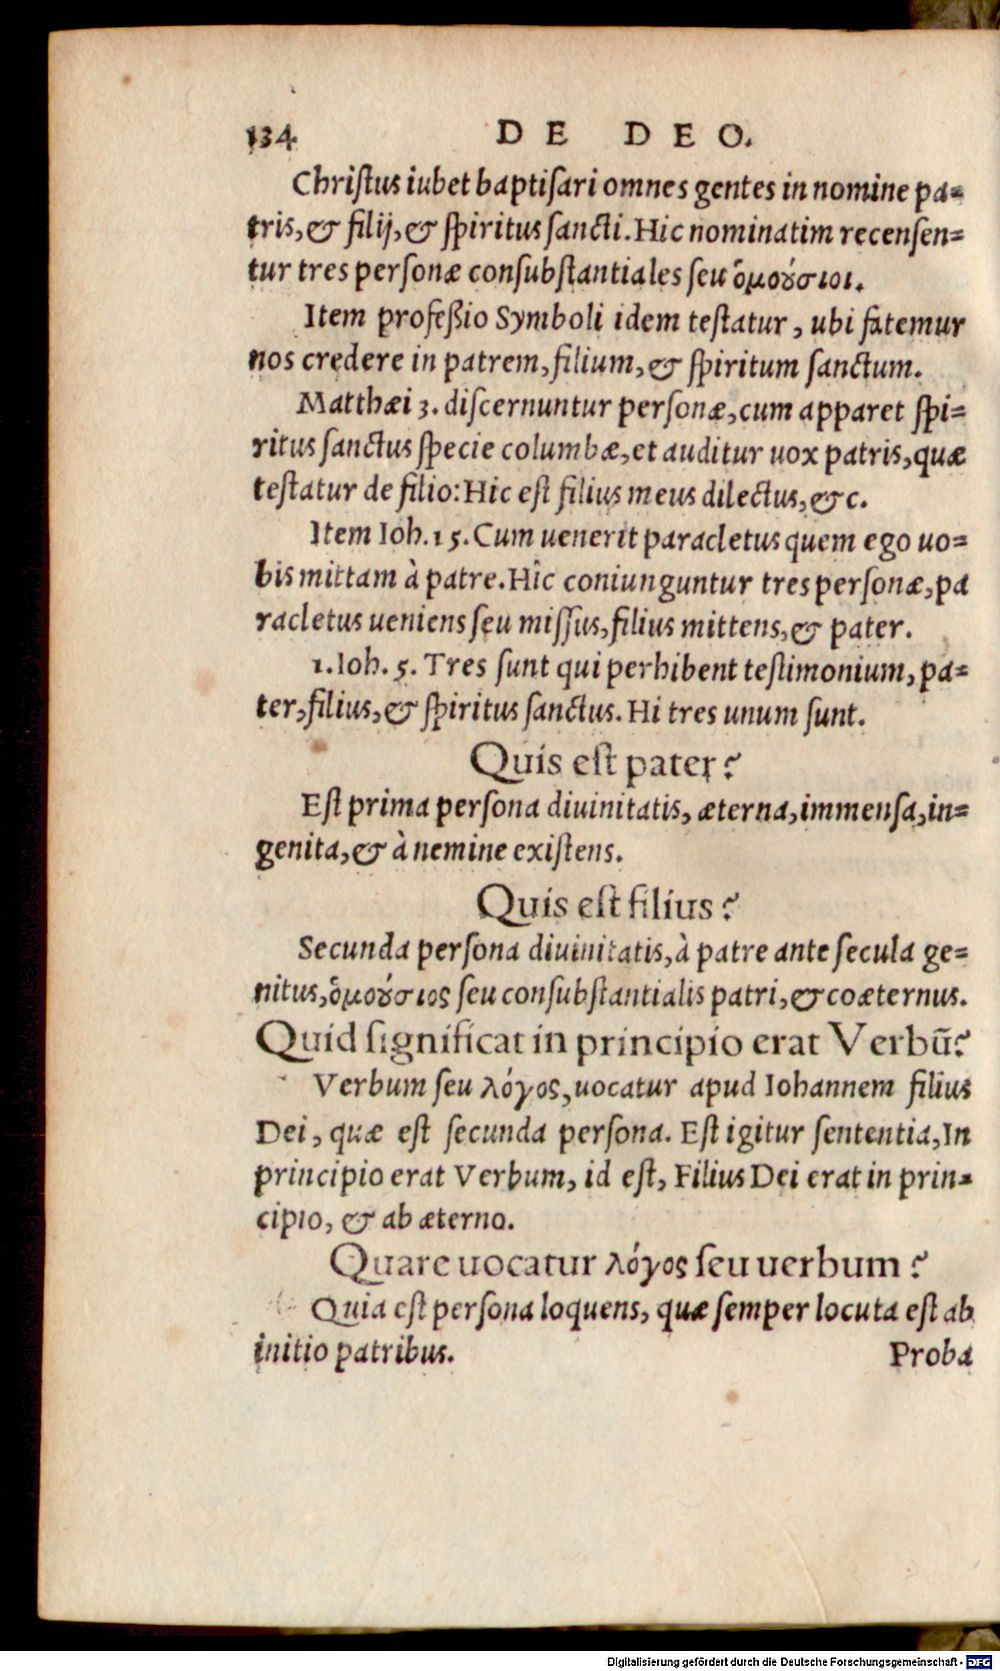 134 DE DEO.
Chriſtus iubet baptiſari omnes gentes in nomine pa=
tris, & filij, & ſpiritus ſancti. Hic nominatim recenſen=
tur tres perſonæ conſubſtantiales ſeu ὁμούσιοι.
Item profeßio Symboli idem teſtatur, ubi fatemur
nos credere in patrem, filium, & ſpiritum ſanctum.
Matthæi 3. diſcernuntur perſonæ, cum apparet ſpi=
ritus ſanctus ſpecie columbæ, et auditur uox patris, quæ
teſtatur de filio: Hic eſt filius meus dilectus, &c.
Item Ioh. 15. Cum uenerit paracletus quem ego uo=
bis mittam à patre. Hîc coniunguntur tres perſonæ, pa
racletus ueniens ſeu miſſus, filius mittens, & pater.
1. Ioh. 5. Tres ſunt qui perhibent teſtimonium, pa=
ter, filius, & ſpiritus ſanctus. Hi tres unum ſunt.
Quis eſt pater?
Eſt prima perſona diuinitatis, æterna, immenſa, in=
genita, & à nemine exiſtens.
Quis eſt filius?
Secunda perſona diuinitatis, à patre ante ſecula ge=
nitus, ὁμούσιος ſeu conſubſtantialis patri, & coæternus.
Quid ſignificat in principio erat Verbũ?
Verbum ſeu λόγος, uocatur apud Iohannem filius
Dei, quæ eſt ſecunda perſona. Eſt igitur ſententia, In
principio erat Verbum, id eſt, Filius Dei erat in prin=
cipio, & ab æterno.
Quare uocatur λόγος ſeu uerbum?
Quia eſt perſona loquens, quæ ſemper locuta eſt ab
initio patribus. Proba
Digitalisierung gefördert durch die Deutsche Forschungsgemeinschaft - DFG